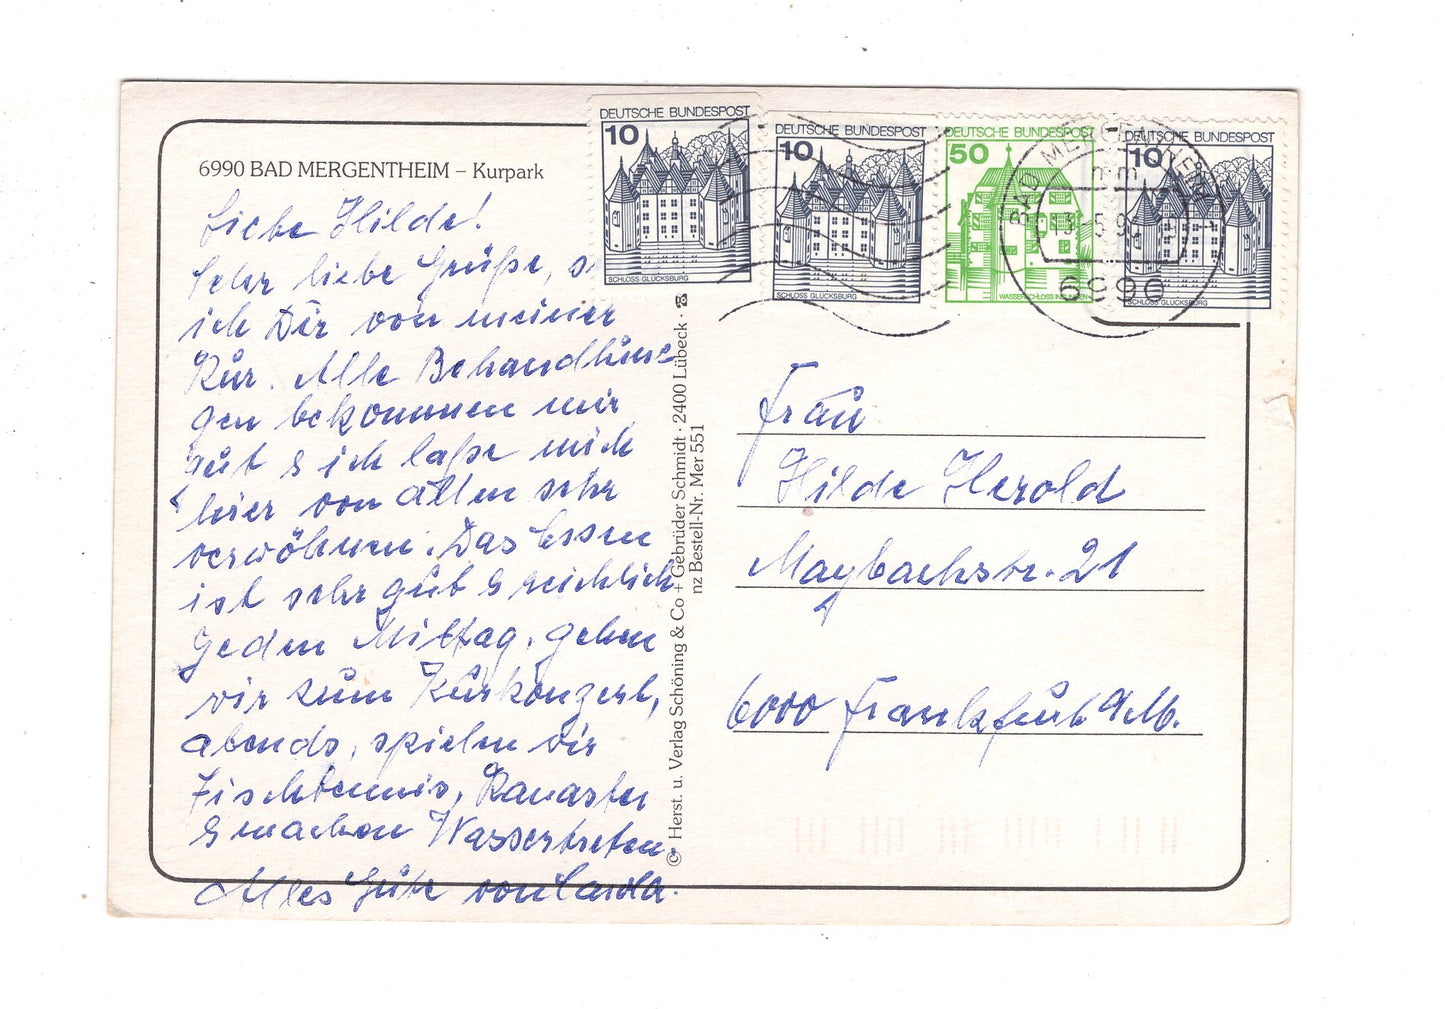 6990 BAD MERGENTHEIM – Kurpark
Liebe Hilde!
Sehr liebe Grüße,
ich Dir von meiner
Kur. Alle Behandlun-
gen bekommen mir
gut & ich laße mich
hier von allen sehr
verwöhnen. Das Essen
ist sehr gut & reichlich
Jeden Mittag, gehen
wir zum Kurkonzert,
abends, spielen wir
Tischtennis, Kanaster
& machen Wassertreten.
Alles Gute von
© Herst. u. Verlag Schöning & Co + Gebrüder Schmidt · 2400 Lübeck ·
nz Bestell-Nr. Mer 551
DEUTSCHE BUNDESPOST
10
SCHLOSS GLÜCKSBURG
DEUTSCHE BUNDESPOST
10
SCHLOSS GLÜCKSBURG
DEUTSCHE BUNDESPOST
50
WASSERSCHLOSS
DEUTSCHE BUNDESPOST
10
SCHLOSS GLÜCKSBURG
BAD MERGENTHEIM
6990
Frau
Hilde Herold
Maybachstr. 21
6000 Frankfurt a/M.